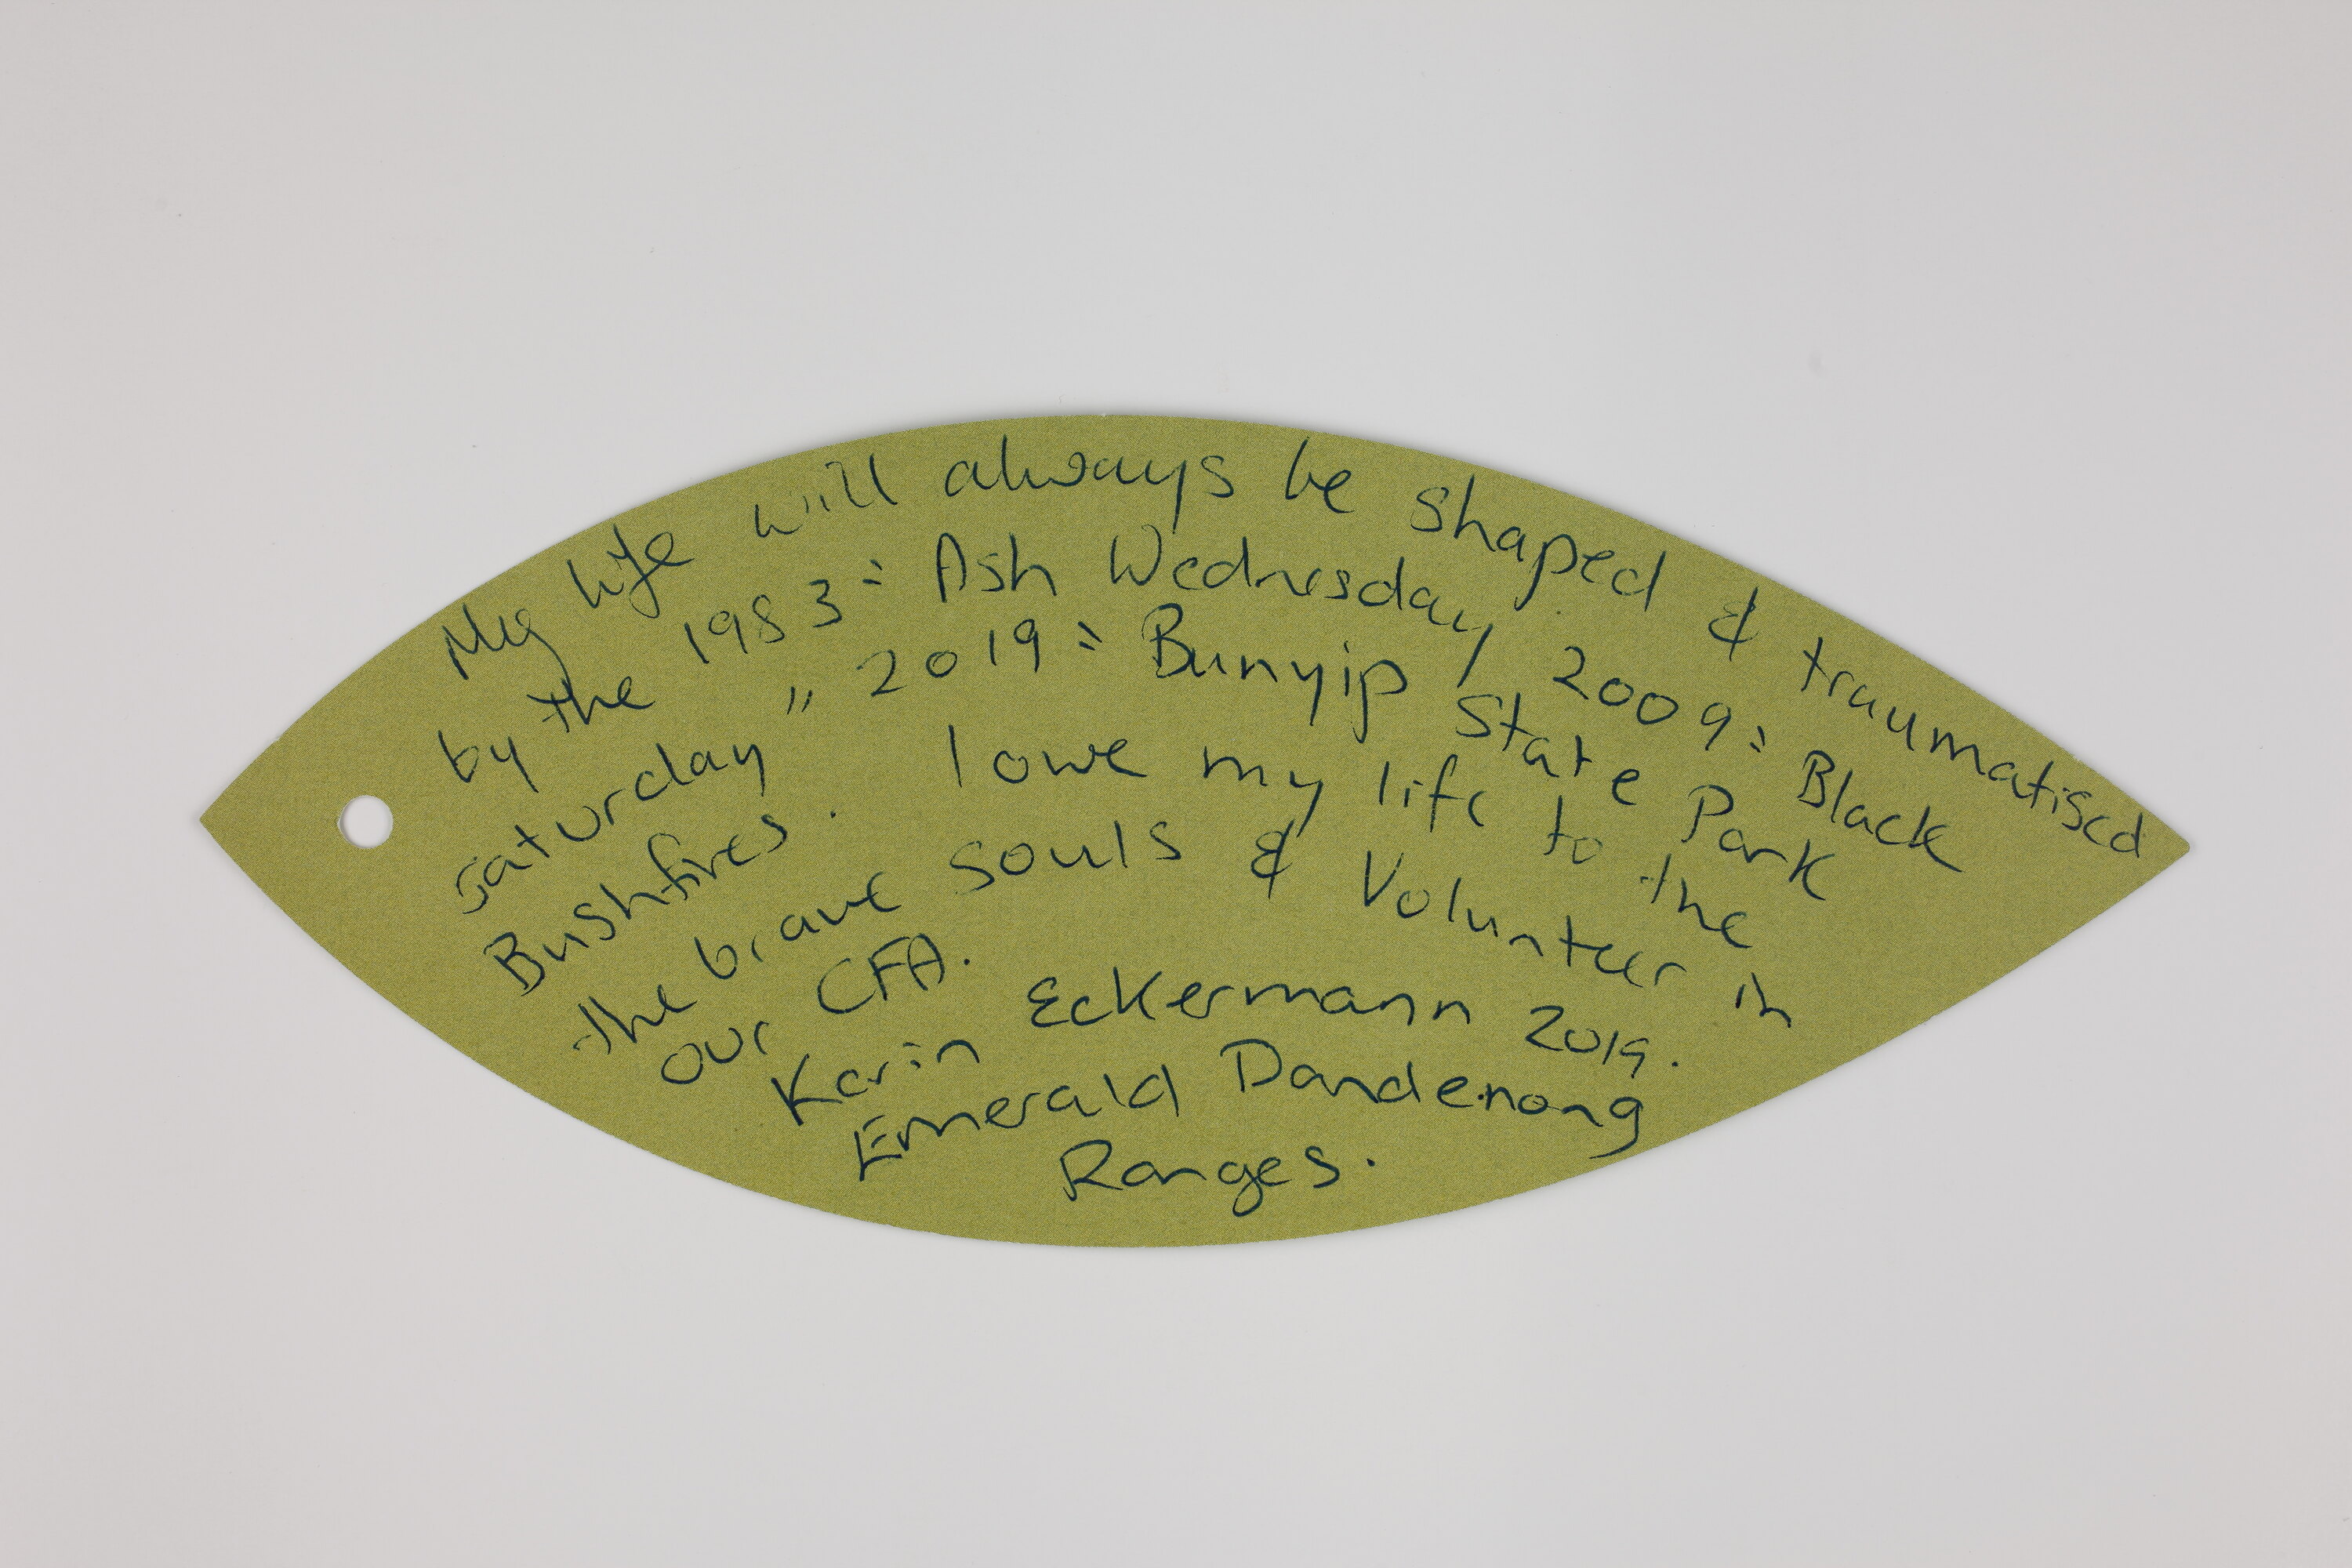 My life will always be shaped & traumatised
by the 1983: Ash Wednesday, 2009: Black
Saturday " 2019: Bunyip State Park
Bushfires. I owe my life to the
the brave souls & Volunteer in
our CFA.
Karin Eckermann 2019.
Emerald Dandenong
Ranges.